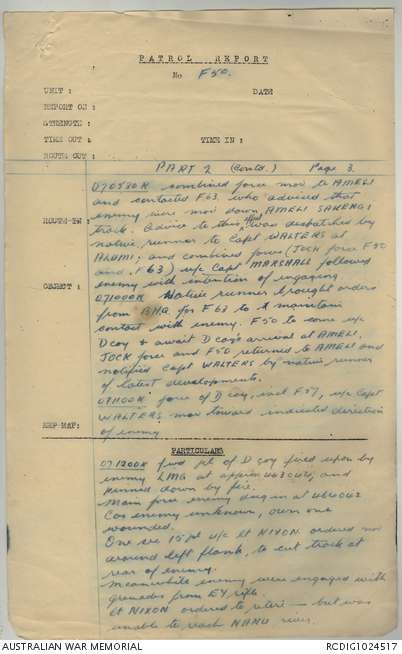 PATROL REPORT
No F50.
UNIT :
DATE
REPORT ON :
STRENGTH :
TIME OUT :
TIME IN :
ROUTE OUT :
PART 2 (Contd.) Page 3.
070580K combined force mov to AMELI
and contacted F63, who advised that
enemy were mov down AMELI SANENGI
ROUTE IN :
track. Advice to this effect was despatched by
native runner to Capt WALTERS at
ALUMI, and combined force (JOCK force F50
and F63) u/c Capt MARSHALL followed
enemy with intention of engaging
OBJECT :
071000K Native runner brought orders
from BHQ. for F63 to maintain
contact with enemy. F50 to come u/c
D Coy & await D coys arrival at AMELI.
JOCK force and F50 returned to AMELI and
notified Capt WALTERS by native runner
of latest developments.
071100K force of D Coy, incl F57, u/c Capt
WALTERS mov toward indicated direction
of enemy
REF MAP:
PARTICULARS
071200K fwd pl of D Coy fired upon by
enemy LMG at approx 463042, and
pinned down by fire.
Main force enemy dug in at 464042
Cas enemy unknown, own one
wounded.
One sec 15 pl u/c Lt NIXON ordered mov
around left flank, to cut track at
rear of enemy.
Meanwhile enemy were engaged with
grenades from EY rifle.
Lt NIXON ordered to retire — but was
unable to reach NANU river.
AUSTRALIAN WAR MEMORIAL
RCDIG1024517